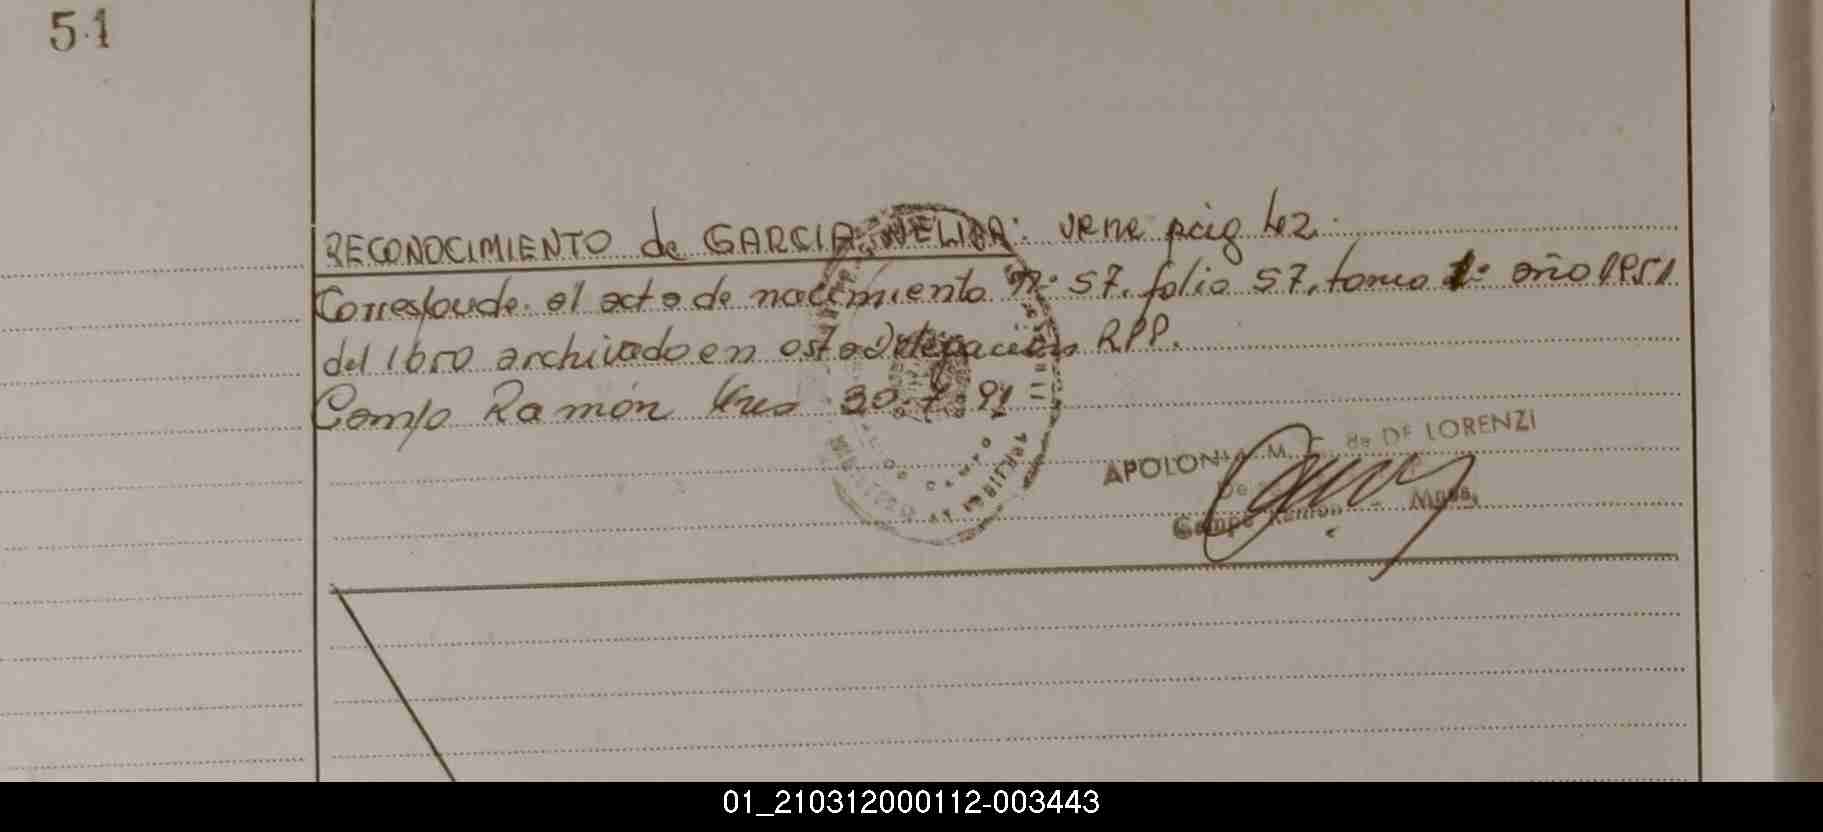 51
RECONOCIMIENTO de GARCIA: NELIDA: viene pág 42.
Corresponde al acta de nacimiento Nº 57, folio 57, tomo 1º año 1951
del libro archivado en esta Delegación RPP.
Campo Ramón 30.7.91
APOLONIA M. de DE LORENZI
Campo Ramón - Mnes.
01_210312000112-003443